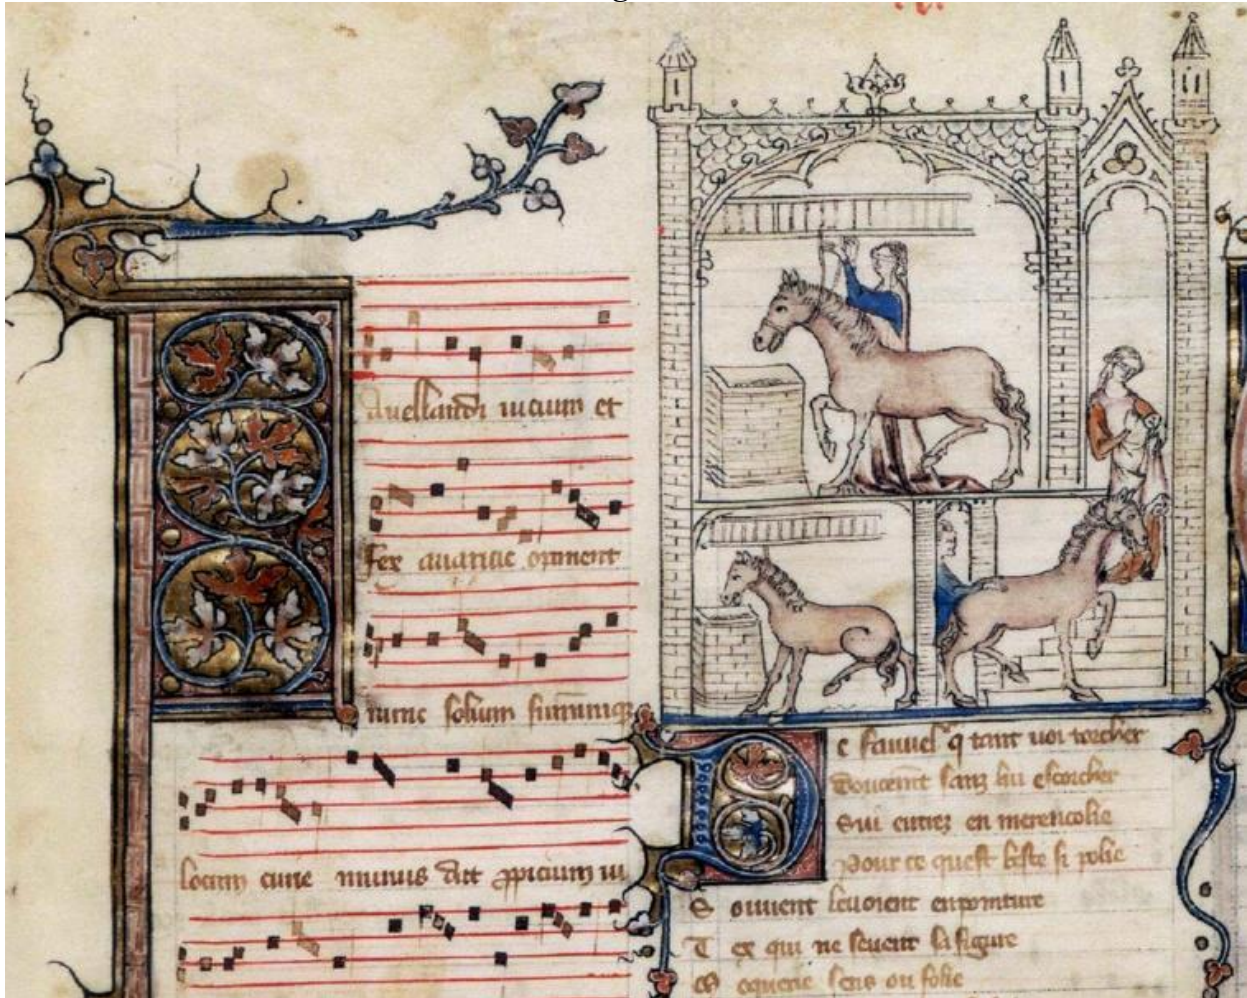 Fauellandi uicium et
fex auaricie optinent
nunc solium summumq;
locum curie munus dat ppicium iu
De fauuel q tant uoi torcher
Doucemt sanz lui escorcher
Sui entrez en merencolie
Pour ce quest beste si polie
Souuent leuoient enpointure
Tex qui ne seuent la figure
Moquerie sens ou folie